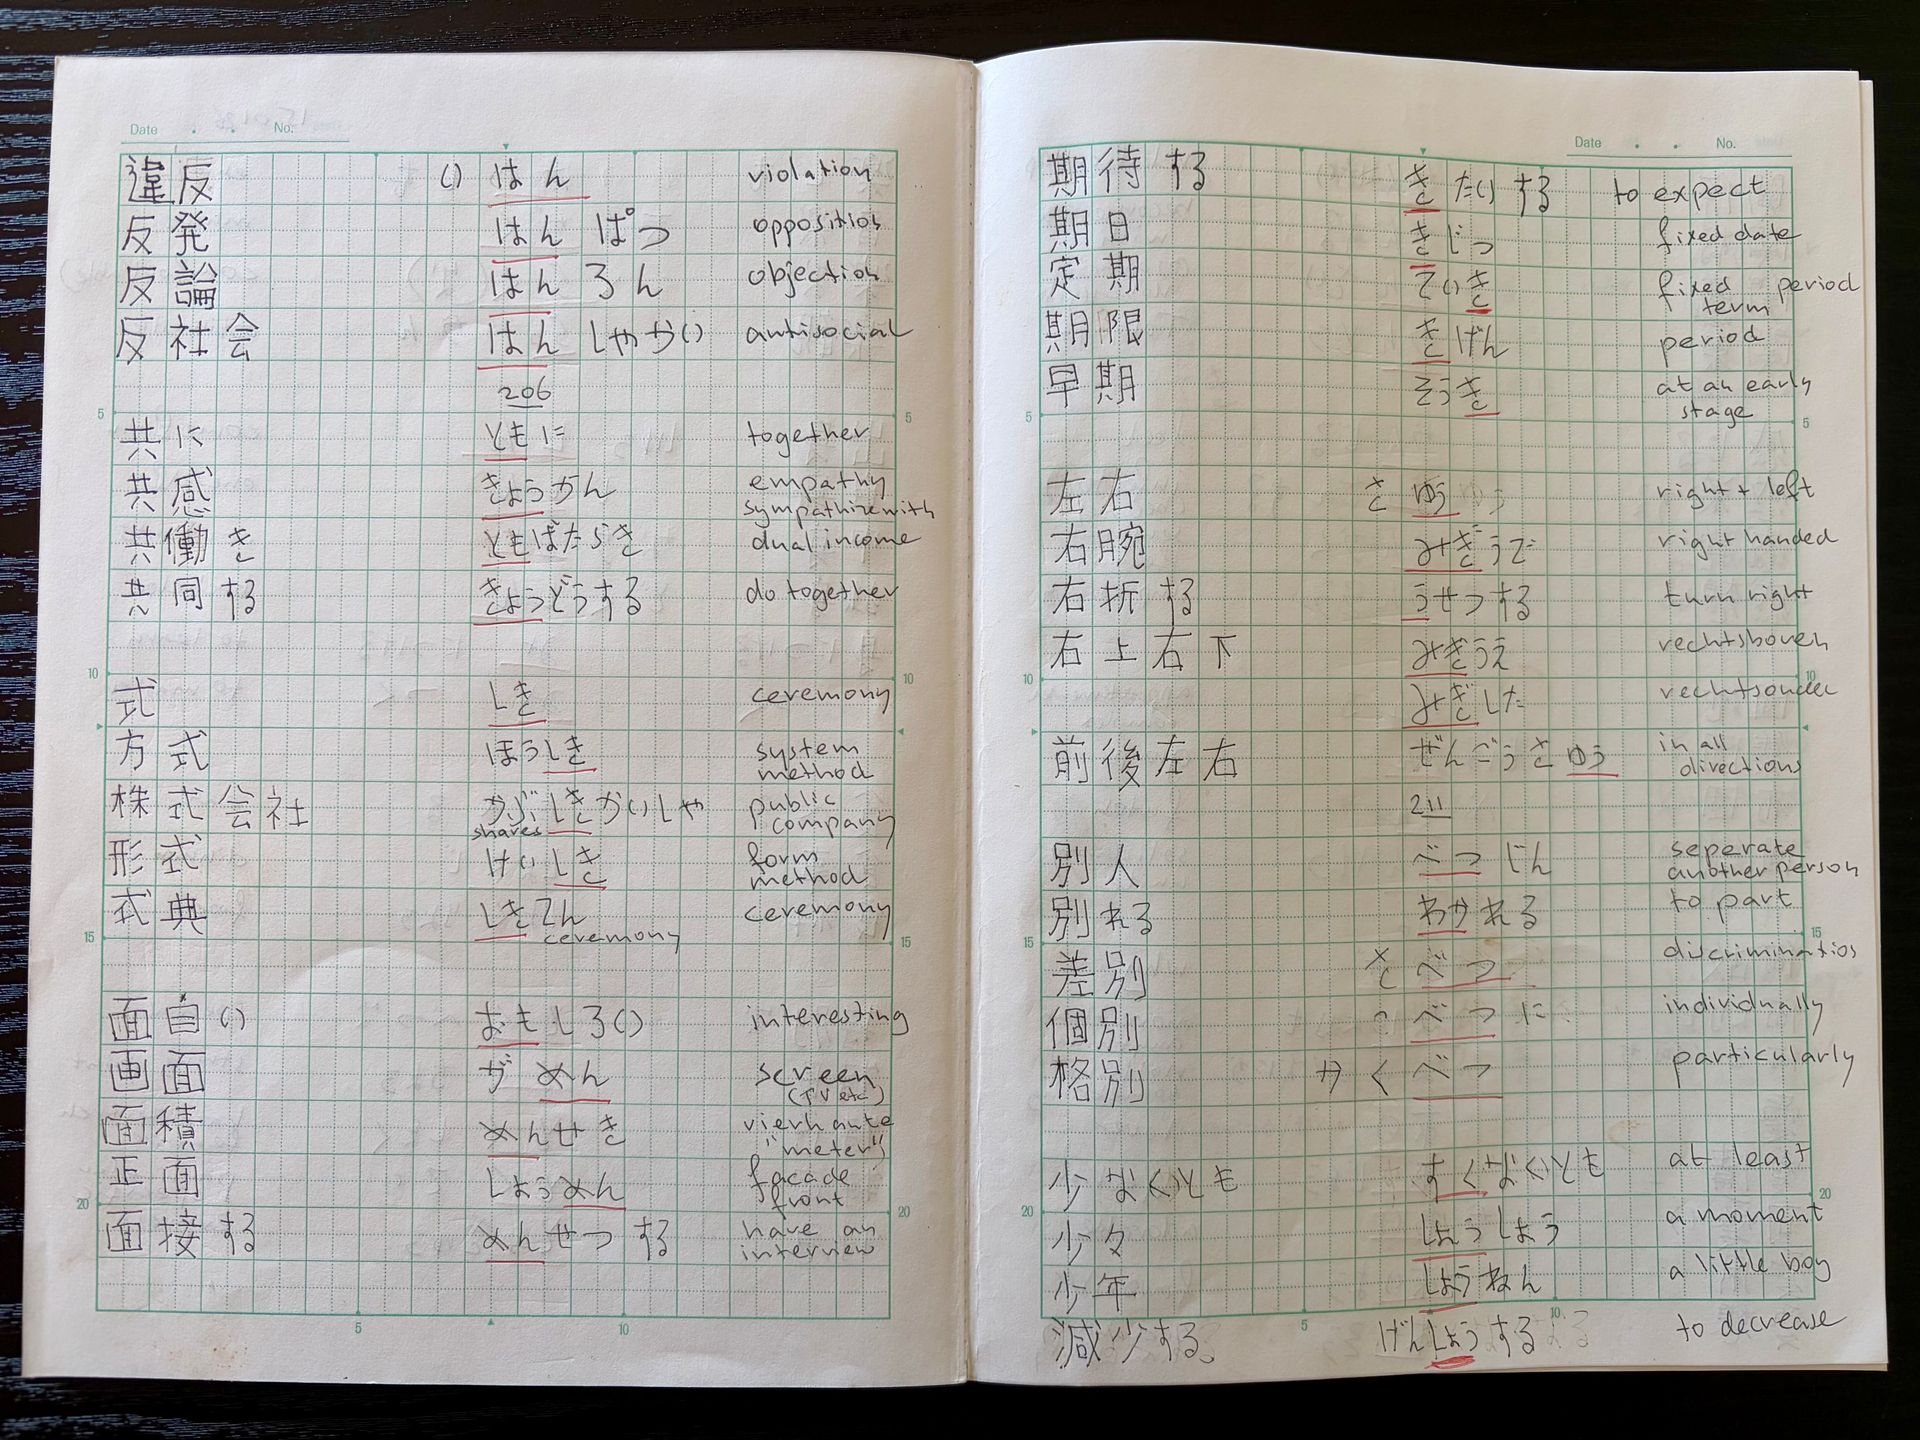 Date . . No.
違反 いはん violation
反発 はんぱつ opposition
反論 はんろん objection
反社会 はんしゃかい antisocial
206
5 5
共に ともに together
共感 きょうかん empathy
sympathize with
共働き ともばたらき dual income
共同する きょうどうする do together
10 10
式 しき ceremony
方式 ほうしき system
method
株式会社 かぶしきかいしゃ public
shares company
形式 けいしき form
method
式典 しきてん ceremony
ceremony
15 15
面白い おもしろい interesting
画面 がめん screen
(TV etc)
面積 めんせき vierkante
"meter"
正面 しょうめん facade
front
20 20
面接する めんせつする have an
interview
5 10
Date . . No.
期待する きたいする to expect
期日 きじつ fixed date
定期 ていき fixed period
term
期限 きげん period
早期 そうき at an early
stage
5 5
左右 さゆう right + left
右腕 みぎうで right handed
右折する うせつする turn right
右上右下 みぎうえ rechtsboven
10 10
みぎした rechtsonder
前後左右 ぜんごうさゆう in all
directions
211
別人 べつじん seperate
another person
別れる わかれる to part
15 15
差別 さべつ discrimination
個別 こべつに individually
格別 かくべつ particularly
少なくとも すくなくとも at least
20 20
少々 しょうしょう a moment
少年 しょうねん a little boy
5 10
減少する。 げんしょうする to decrease